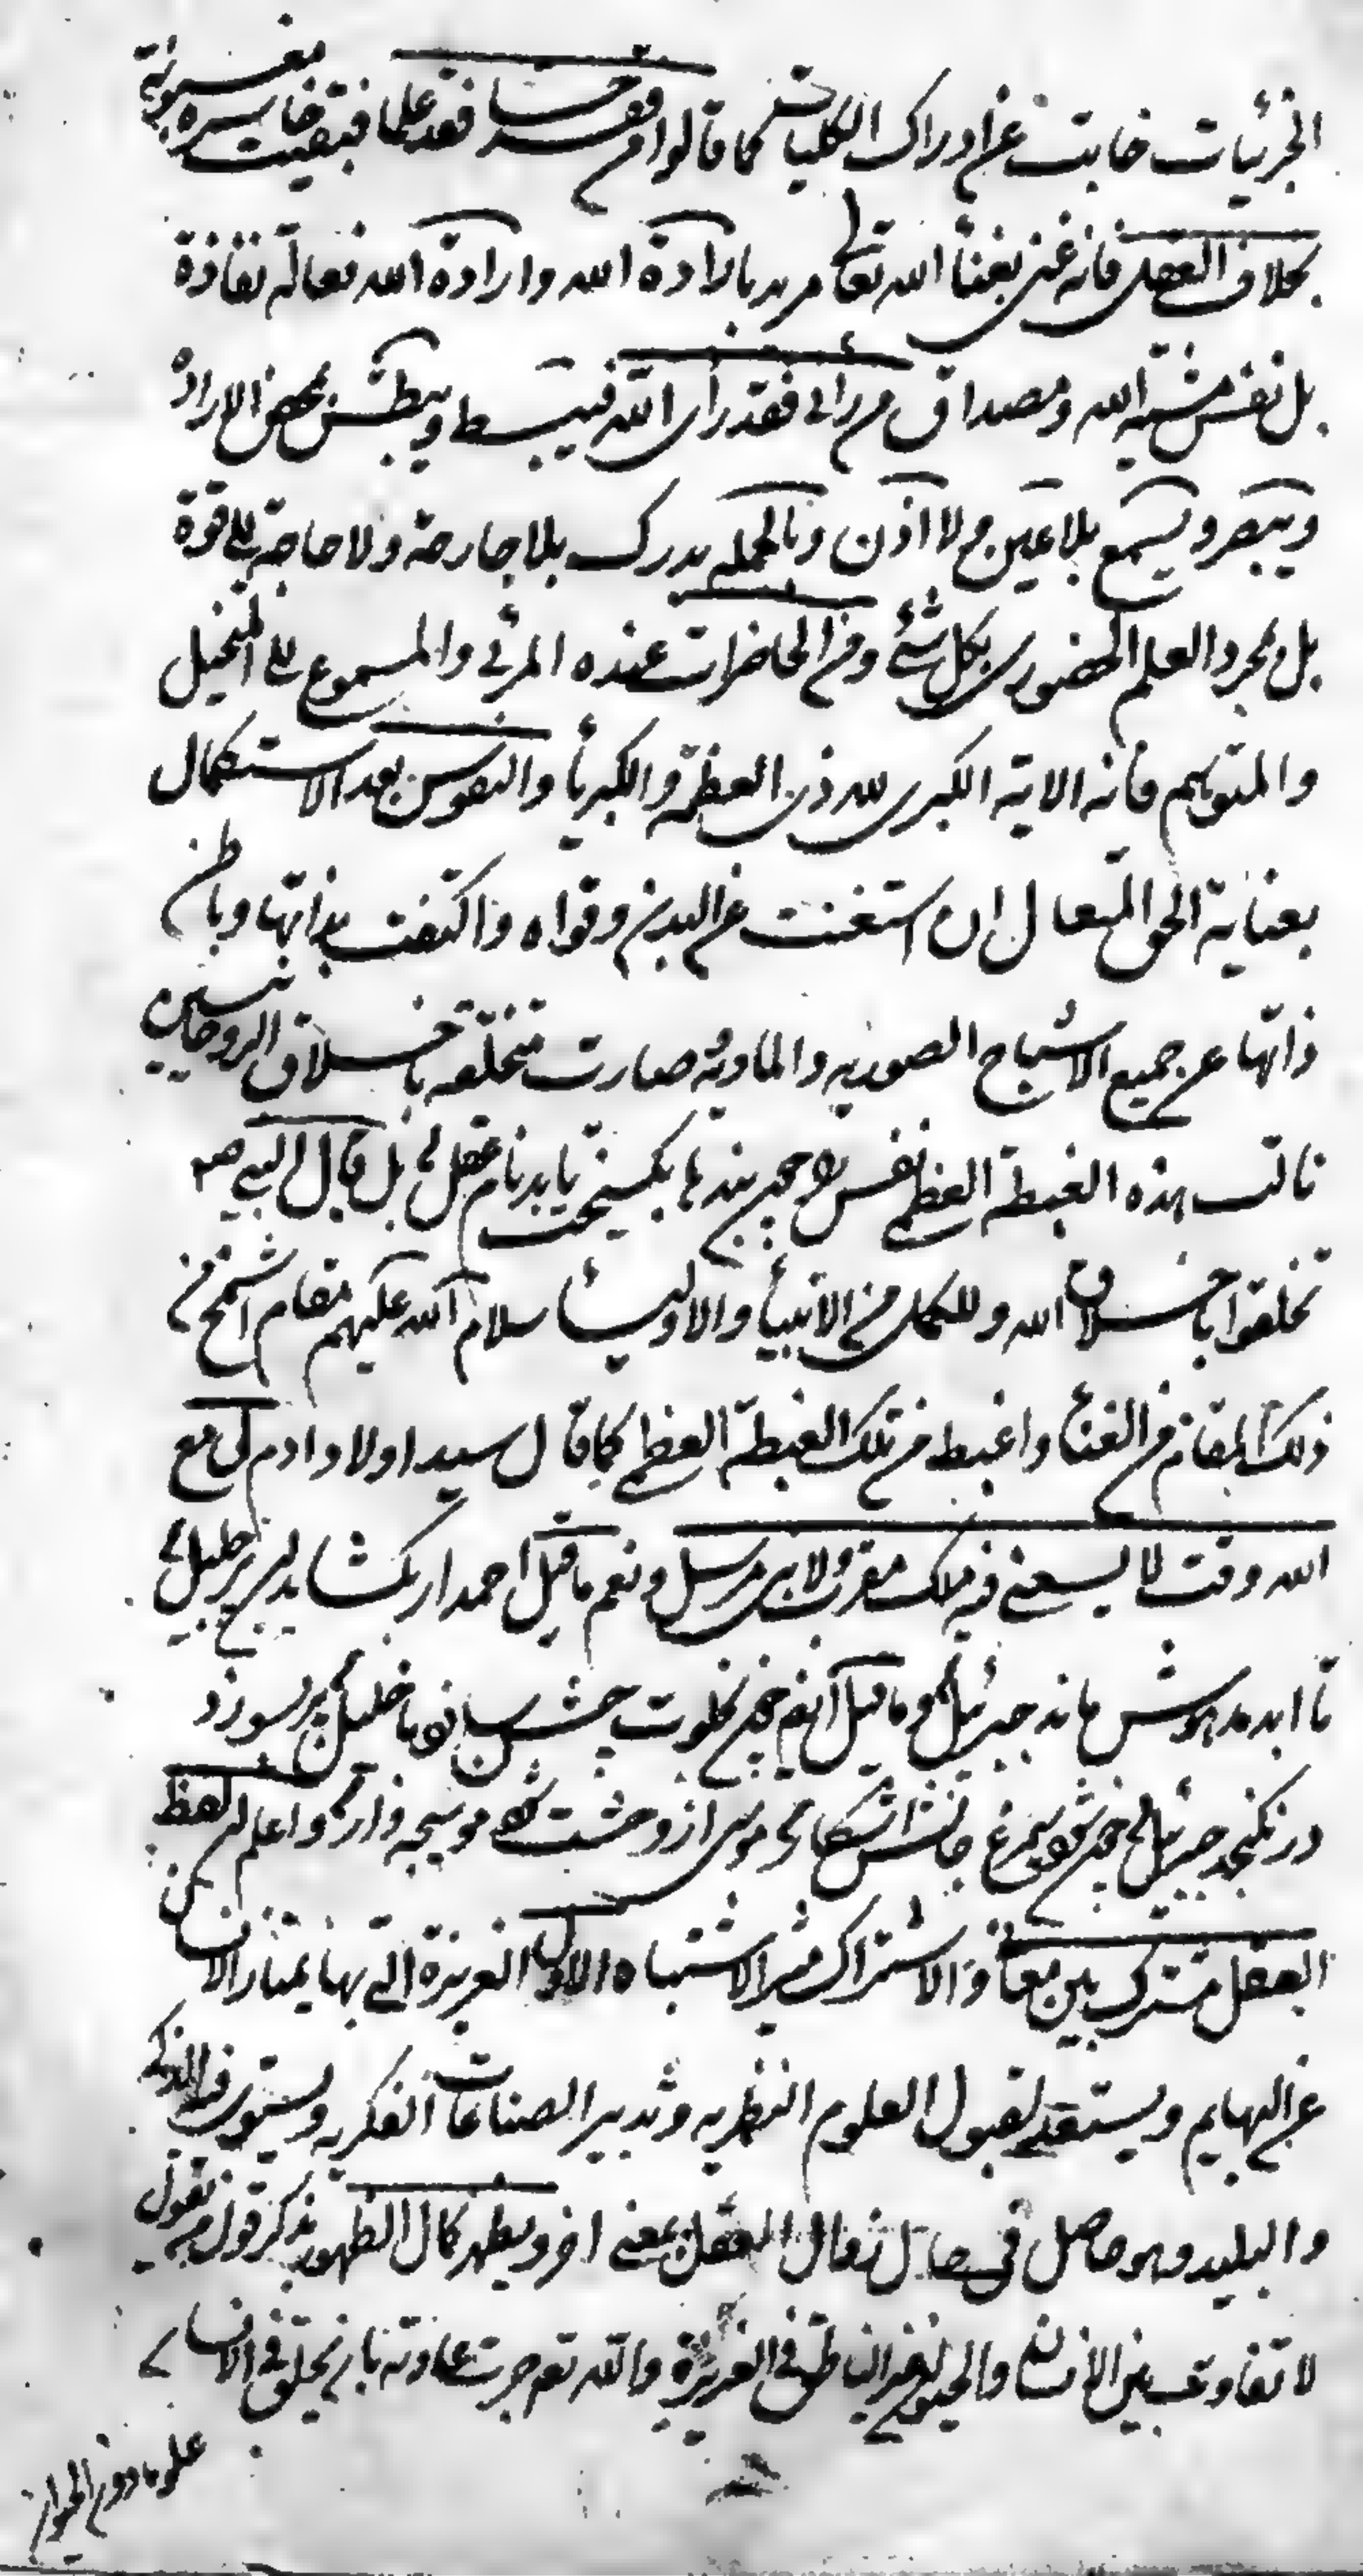 الجزئيات خابت عن ادراك الكليات كما قالوا من فقد حسا فقد علما فبقيت خاسرة مغبونة
بخلاف العقل فانه غنى بغناء الله تعالى مريد بارادة الله وارادة الله فعالة نفاذة
بل نفس مشية الله ومصداق من رانى فقد راى الله فيبسط ويبطش بمحض الارادة
ويبصر ويسمع بلا عين ولا اذن وبالجمله يدرك بلا جارحة ولا حاجة الى قوة
بل بمجرد العلم الحضورى بكل شئ ومن الحاضرات عنده المرئى والمسموع الى المتخيل
والمتوهم فانه الاية الكبرى لله ذى العظمة والكبرياء والنفوس بعد الاستكمال
بعناية الحق المتعال ان استغنت عن البدن وقواه واكتفت بذاتها وباطن
ذاتها عن جميع الاشباح الصوريه والماديه صارت متخلقه باخلاق الروحانيين
نالت هذه الغبطة العظمى نفس را چون بندها بكسيخت يابد نام عقل بل قال النبى صه
تخلقوا باخلاق الله وللكمل من الانبياء والاولياء سلام الله عليهم مقام اشمخ من
ذلك المقام من الغناء واغبط من تلك الغبطة العظمى كما قال سيد اولاد ادم لى مع
الله وقت لا يسعنى فيه ملك مقرب ولا نبى مرسل ونعم ما قيل احمد ار بكشايد ان پر جليل
تا ابد مدهوش ماند جبرئيل وما قيل ايضا چون بخلوت جشن سازد با خليل پر بسوزد
در نكنجد جبرئيل چون شود سيمرغ جانش اشكار موسى از وحشت شود موسيجه وار واعلم ان لفظ
العقل مشترك بين معان والاشتراك مثير الاشتباه الاول الغريزة التى بها يمتاز الانسان
عن البهايم ويستعد لقبول العلوم النظريه وتدبير الصناعات الفكريه ويستوى فيه الذكى
والبليد وهو حاصل فى حال العقل بمعنى اخر ويظهر كمال الظهور بذكر قول من يقول
لا تفاوت بين الانسان والحيوان الغير الناطق فى الغريزة والله تع جرت عادته بان يخلق فى الانسان
علوما دون الحيوان